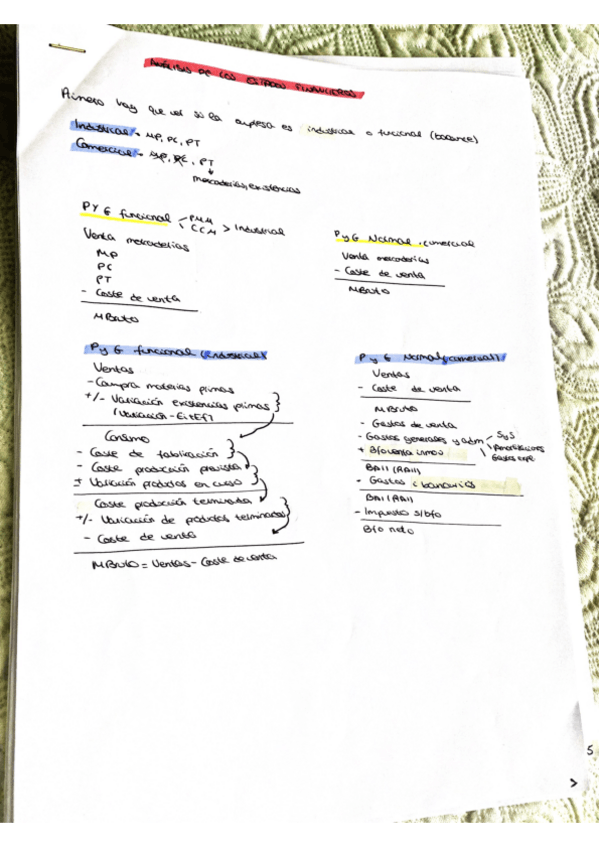 ANÁLISIS DE LOS ESTADOS FINANCIEROS
Primero hay que ver si la empresa es industrial o funcional (balance)
Industrial → MP, PC, PT
Comercial → MP, PC, PT
mercaderías, existencias
PYG funcional PMM CCM > Industrial
Venta mercaderías
MP
PC
PT
- Coste de venta
MBruto
PyG Normal, comercial
Venta mercaderías
- Coste de venta
MBruto
PyG funcional (Industrial)
Ventas
- Compra materias primas
+/- Variación existencias primas
(Variación - Ei+Ef)
Consumo
- Coste de fabricación
- Coste producción prevista
± Variación productos en curso
Coste producción terminada
+/- Variación de productos terminados
- Coste de venta
MBruto = Ventas - Coste de venta
PyG Normal (comercial)
Ventas
- Coste de venta
MBruto
- Gastos de venta
- Gastos generales y adm
SyS
Amortizaciones
Gastos
+ Bfo venta inmov
BAII (RAII)
- Gastos bancarios
BAI (RAI)
- Impuesto s/bfo
Bfo neto
5
>